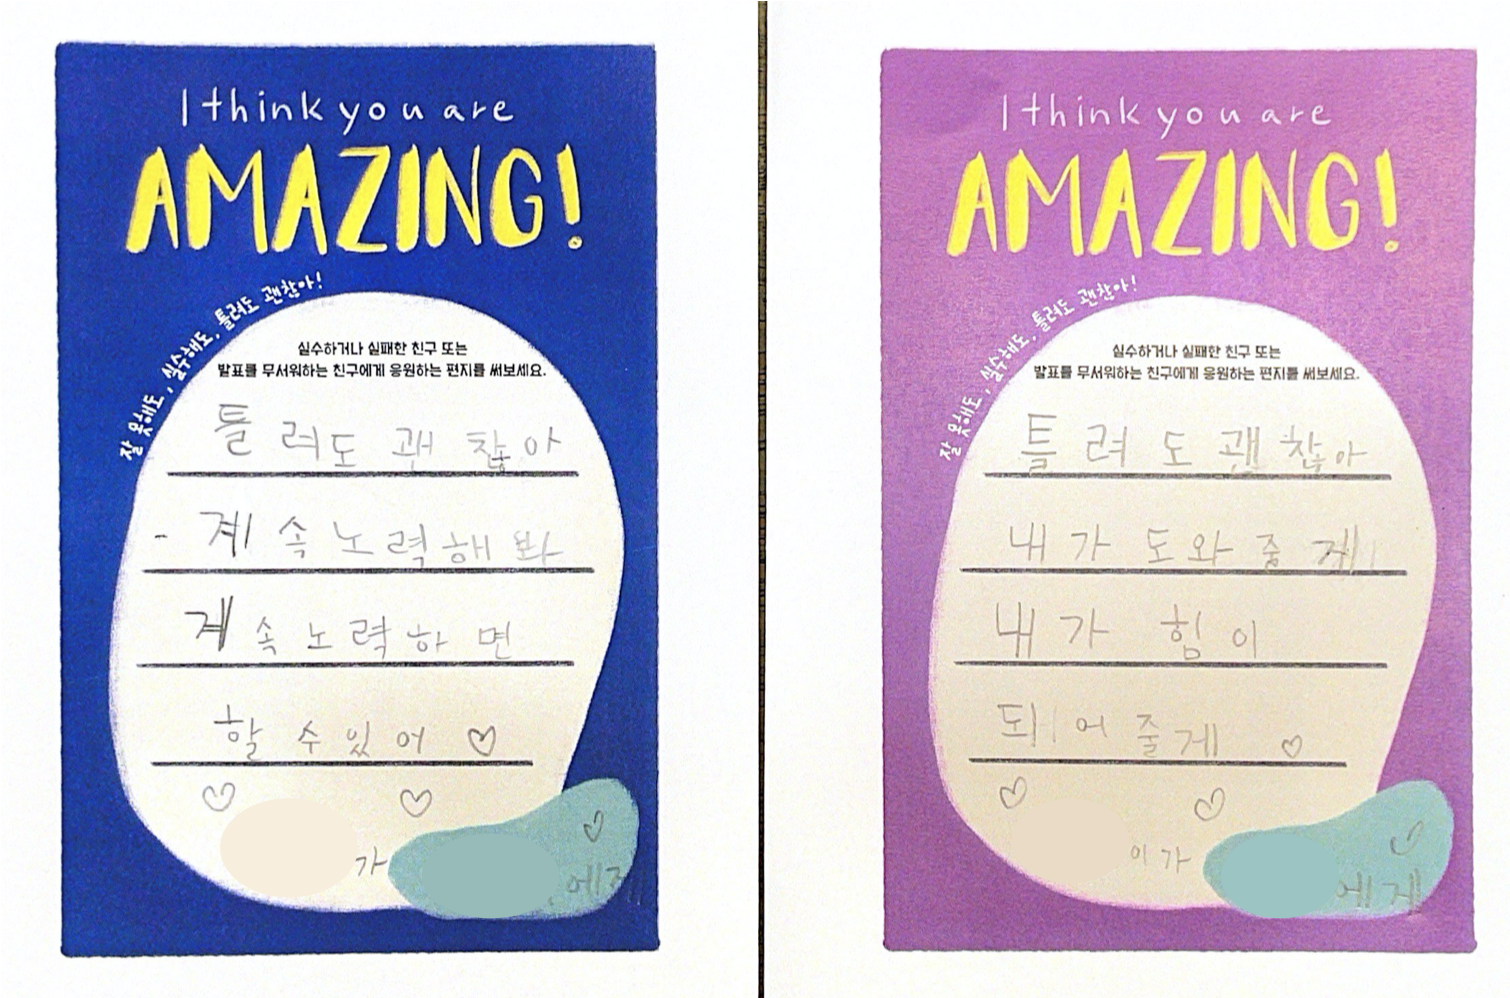 I think you are
AMAZING!
잘 못해도, 실수해도, 틀려도 괜찮아!
실수하거나 실패한 친구 또는
발표를 무서워하는 친구에게 응원하는 편지를 써보세요.
틀려도 괜찮아
- 계속 노력해 봐
계속 노력하면
할 수 있어 ♡
♡ ♡ ♡
가
에게
I think you are
AMAZING!
잘 못해도, 실수해도, 틀려도 괜찮아!
실수하거나 실패한 친구 또는
발표를 무서워하는 친구에게 응원하는 편지를 써보세요.
틀려도 괜찮아
내가 도와줄게
내가 힘이
되어줄게 ♡
♡ ♡ ♡
이가
에게